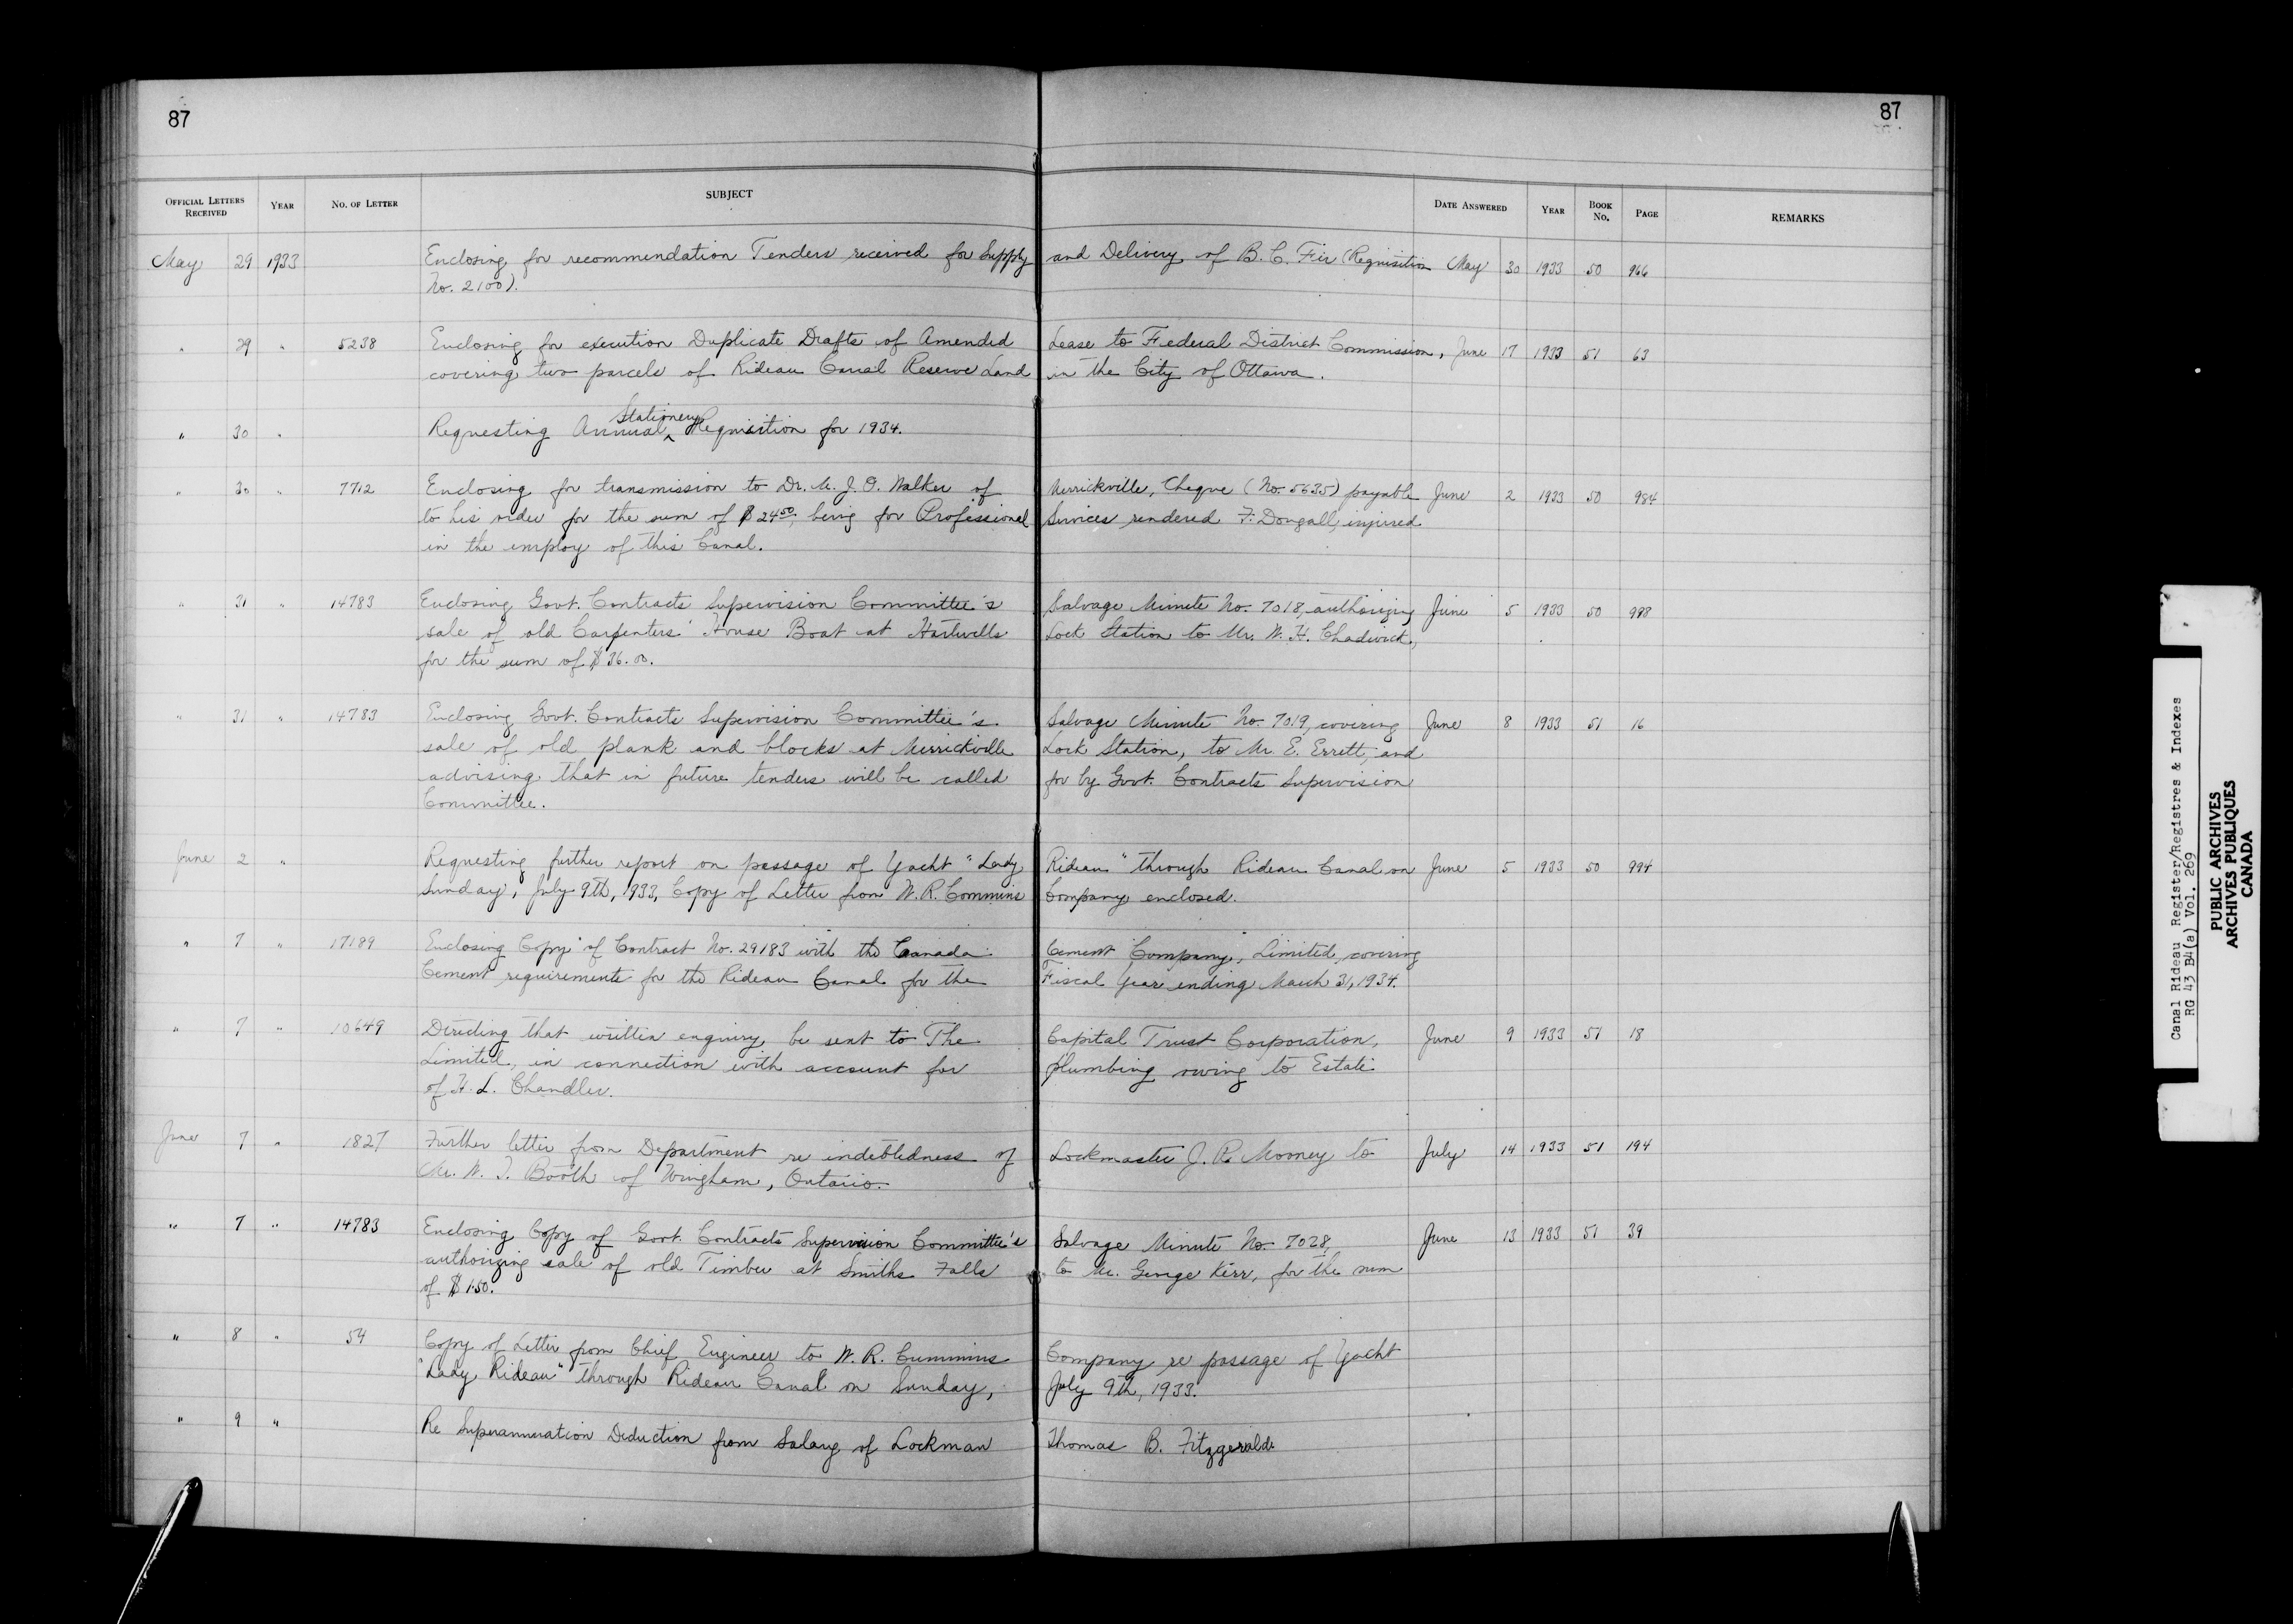 87
87
OFFICIAL LETTERS RECEIVED YEAR NO. OF LETTER SUBJECT DATE ANSWERED YEAR BOOK NO. PAGE REMARKS
May 29 1933 Enclosing for recommendation Tenders received for Supply and Delivery of B.C. Fir (Requisition May 30 1933 50 966
No. 2100).
" 29 " 5238 Enclosing for execution Duplicate Drafts of Amended Lease to Federal District Commission, June 17 1933 51 63
covering two parcels of Rideau Canal Reserve Land in the City of Ottawa.
" 30 " Requesting Annual Stationery Requisition for 1934.
" 30 " 7712 Enclosing for transmission to Dr. M. J. O. Walker of Merrickville, Cheque (No. 5635) payable June 2 1933 50 984
to his order for the sum of $24.50, being for Professional Services rendered F. Dougall, injured
in the employ of this Canal.
" 31 " 14783 Enclosing Govt. Contracts Supervision Committee's Salvage Minute No. 7018, authorizing June 5 1933 50 988
sale of old Carpenters' House Boat at Hartwells Lock Station to Mr. W. H. Chadwick,
for the sum of $36.00.
" 31 " 14783 Enclosing Govt. Contracts Supervision Committee's Salvage Minute No. 7019, covering June 8 1933 51 16
sale of old plank and blocks at Merrickville Lock Station, to Mr. E. Errett, and
advising that in future tenders will be called for by Govt. Contracts Supervision
Committee.
June 2 " Requesting further report on passage of Yacht "Lady Rideau" through Rideau Canal on June 5 1933 50 994
Sunday, July 9th, 1933, Copy of Letter from W. R. Commins Company enclosed.
" 7 " 17189 Enclosing Copy of Contract No. 29183 with the Canada Cement Company, Limited, covering
Cement requirements for the Rideau Canal for the Fiscal Year ending March 31, 1934.
" 7 " 10649 Directing that written enquiry be sent to The Capital Trust Corporation, June 9 1933 51 18
Limited, in connection with account for plumbing owing to Estate
of H. L. Chandler.
June 7 " 1827 Further letter from Department re indebtedness of Lockmaster J. R. Mooney to July 14 1933 51 194
Mr. W. J. Booth of Wingham, Ontario.
" 7 " 14783 Enclosing Copy of Govt. Contracts Supervision Committee's Salvage Minute No. 7028, June 13 1933 51 39
authorizing sale of old Timber at Smiths Falls to Mr. George Kerr, for the sum
of $1.50.
" 8 " 54 Copy of Letter from Chief Engineer to W. R. Cummins Company re passage of Yacht
"Lady Rideau" through Rideau Canal on Sunday, July 9th, 1933.
" 9 " Re Superannuation Deduction from Salary of Lockman Thomas B. Fitzgerald.
Canal Rideau Register/Registres & Indexes
RG 43 B4(a) Vol. 269
PUBLIC ARCHIVES
ARCHIVES PUBLIQUES
CANADA